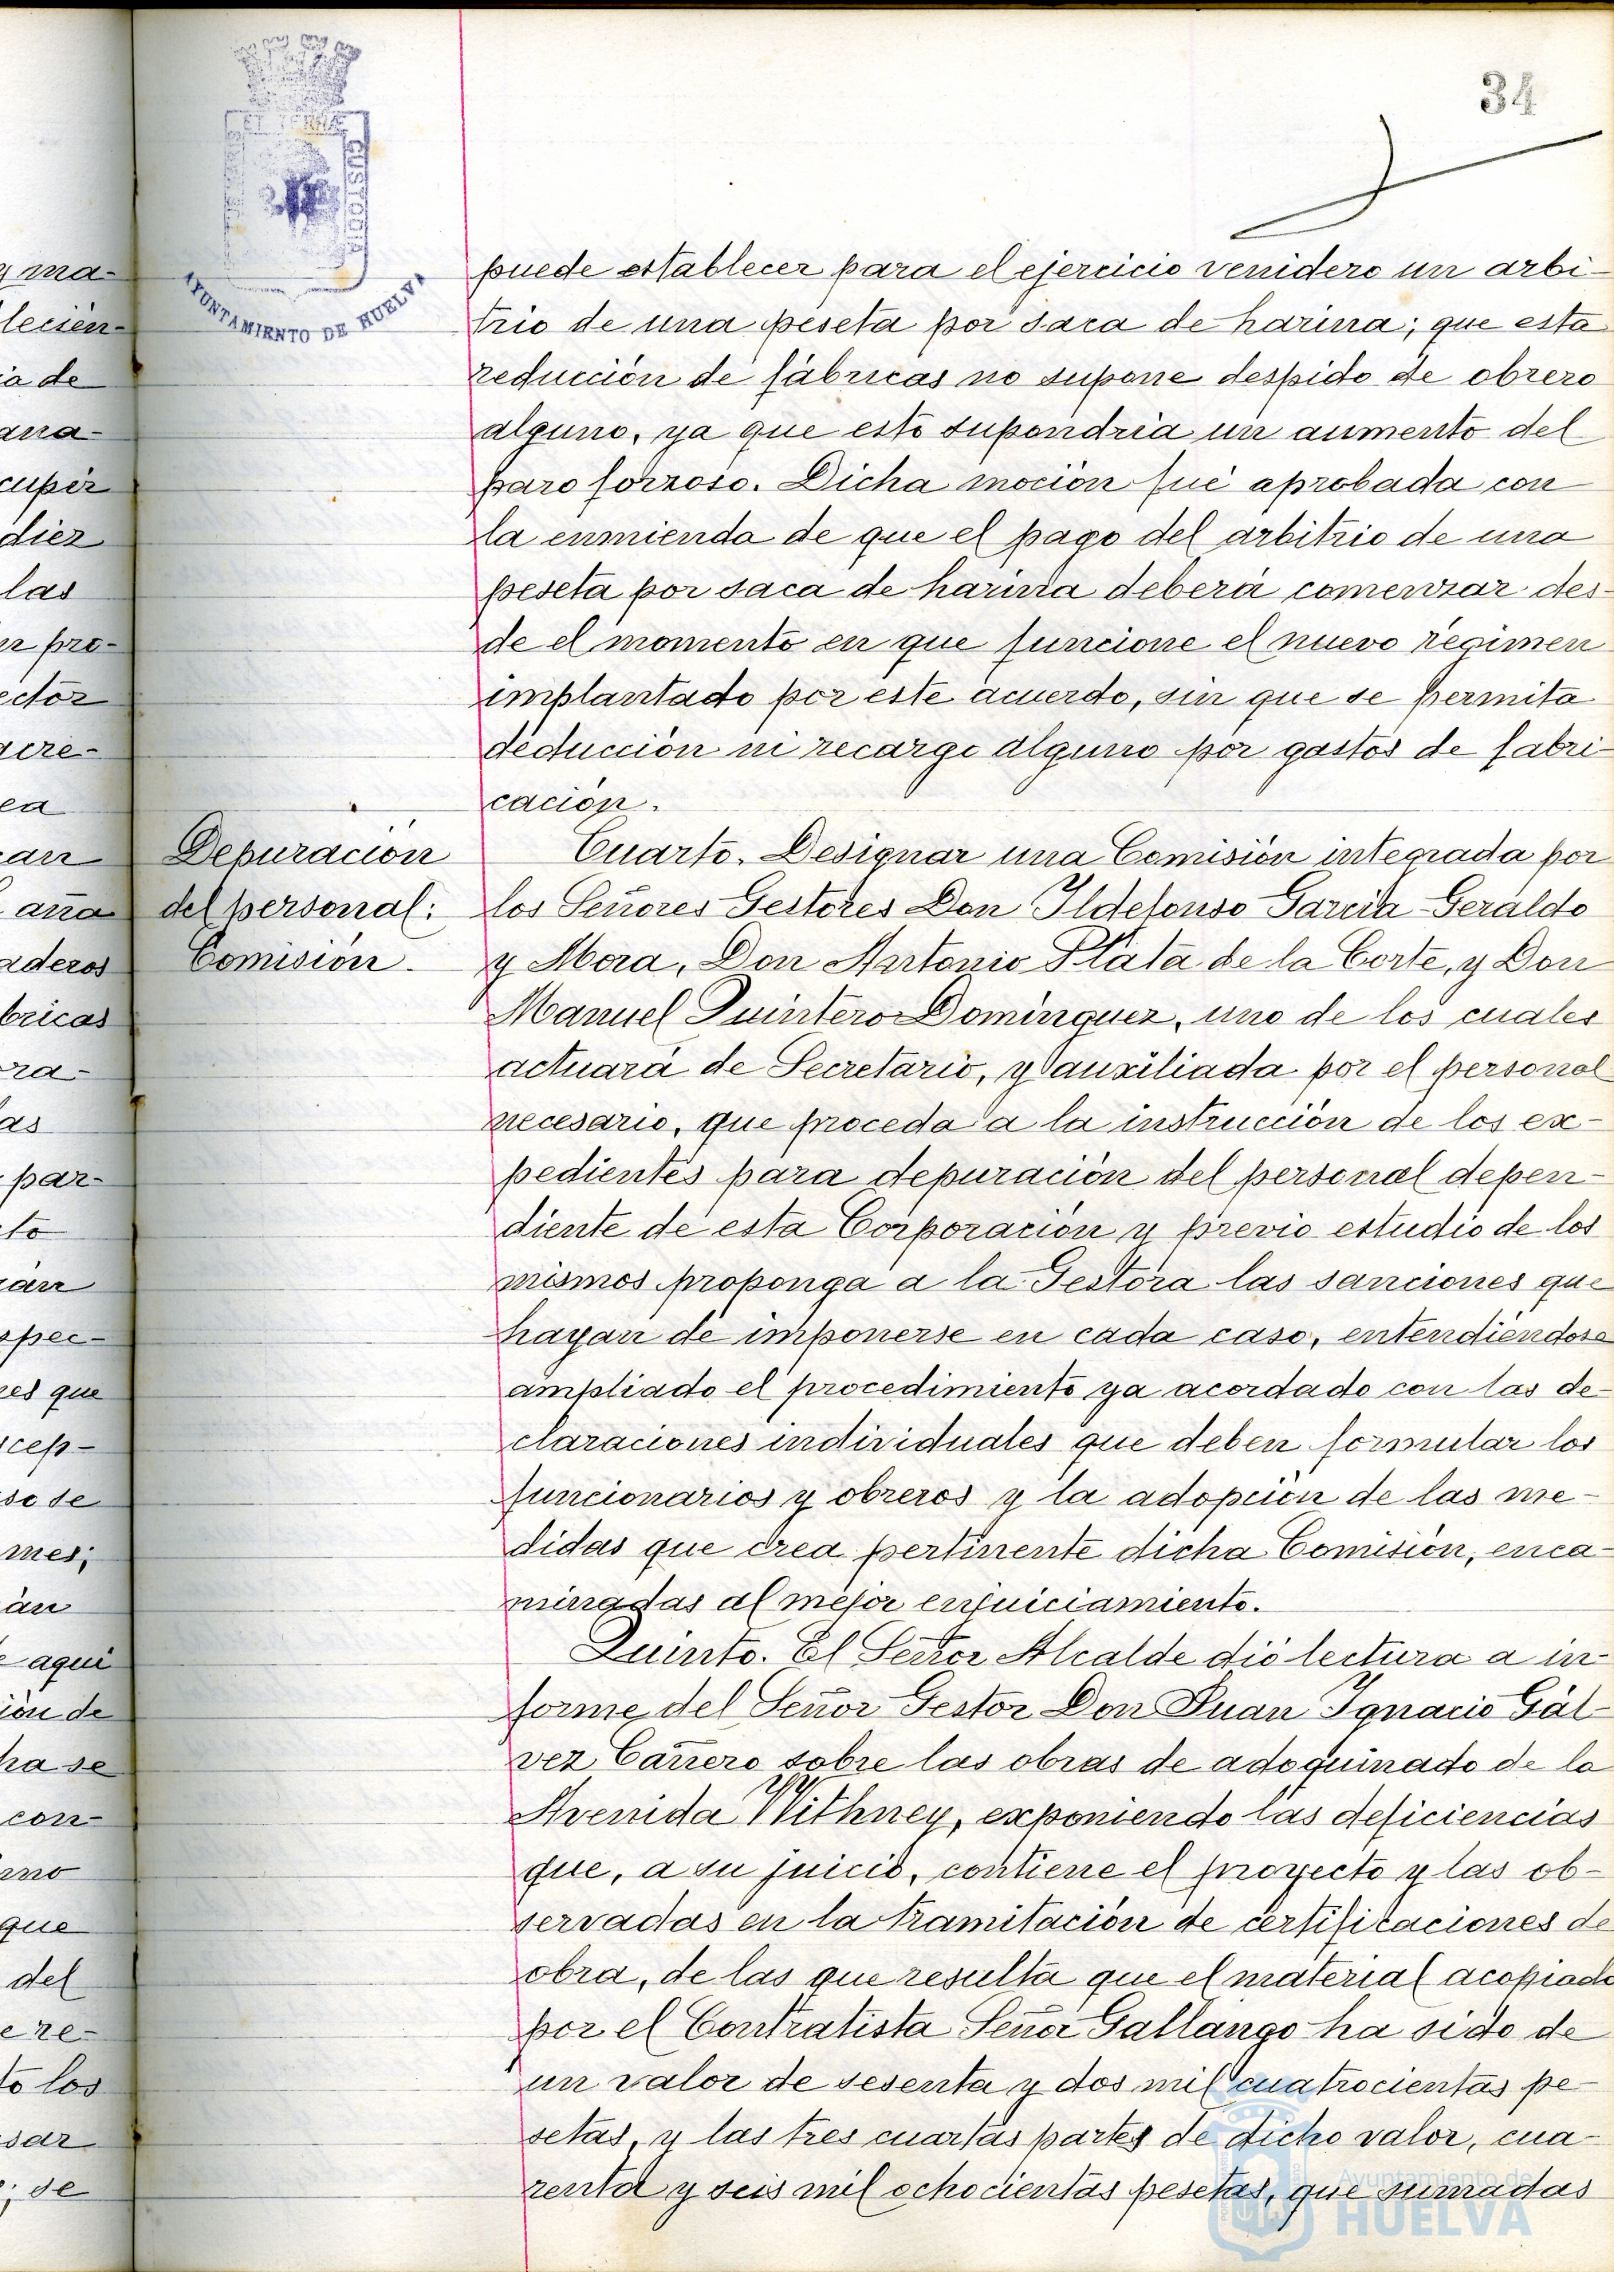 34
ET TERRÆ
CUSTODIA
AYUNTAMIENTO DE HUELVA
y ma-
lecien-
ia de
ana-
cupér
diez
las
pro-
ector
acre-
ea
can
aña
aderos
bricas
ra-
as
par-
to
rán
spec-
res que
cep-
so se
mes;
án
e aquí
ión de
ha se
con-
rno
que
del
e re-
to los
sar
; se
puede establecer para el ejercicio venidero un arbi-
trio de una peseta por saca de harina; que esta
reducción de fábricas no supone despido de obrero
alguno, ya que esto supondría un aumento del
paro forzoso. Dicha moción fué aprobada con
la enmienda de que el pago del arbitrio de una
peseta por saca de harina deberá comenzar des-
de el momento en que funcione el nuevo régimen
implantado por este acuerdo, sin que se permita
deducción ni recargo alguno por gastos de fabri-
cación.
Depuración
del personal:
Comisión.
Cuarto. Designar una Comisión integrada por
los Señores Gestores Don Ildefonso García-Geraldo
y Mora, Don Antonio Plata de la Corte, y Don
Manuel Quintero Domínguez, uno de los cuales
actuará de Secretario, y auxiliada por el personal
necesario, que proceda a la instrucción de los ex-
pedientes para depuración del personal depen-
diente de esta Corporación y previo estudio de los
mismos proponga a la Gestora las sanciones que
hayan de imponerse en cada caso, entendiéndose
ampliado el procedimiento ya acordado con las de-
claraciones individuales que deben formular los
funcionarios y obreros y la adopción de las me-
didas que crea pertinente dicha Comisión, enca-
minadas al mejor enjuiciamiento.
Quinto. El Señor Alcalde dió lectura a in-
forme del Señor Gestor Don Juan Ignacio Gál-
vez Cañero sobre las obras de adoquinado de la
Avenida Withney, exponiendo las deficiencias
que, a su juicio, contiene el proyecto y las ob-
servadas en la tramitación de certificaciones de
obra, de las que resulta que el material acopiado
por el Contratista Señor Gallango ha sido de
un valor de sesenta y dos mil cuatrocientas pe-
setas, y las tres cuartas partes de dicho valor, cua-
renta y seis mil ochocientas pesetas, que sumadas
Ayuntamiento de
HUELVA